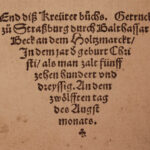 End diß Kreüter bůchs. Getruckt
zů Straßburg durch Balthassar
Beck an dem Holtzmarckt /
In dem jar d geburt Chri
sti / als man zalt fünff
zehen hundert vnd
dreyssig. An dem
zwölfften tag
des Augst
monats.